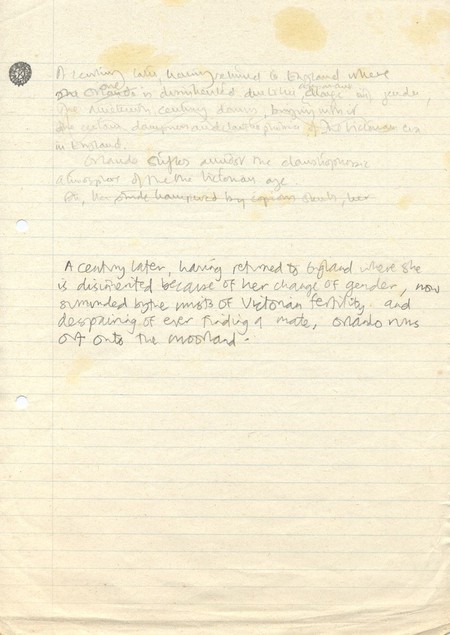 A century later, having returned to England where
she Orlando is disinherited due to her change of gender,
the nineteenth century dawns, bringing with it
the certain dampness and claustrophobia of the Victorian era
in England.
Orlando stifles amidst the claustrophobic
atmosphere of the the Victorian age.
her stride hampered by her
A century later, having returned to England where she
is disinherited because of her change of gender, now
surrounded by the mists of Victorian fertility and
despairing of ever finding a mate, Orlando runs
off onto the moorland.